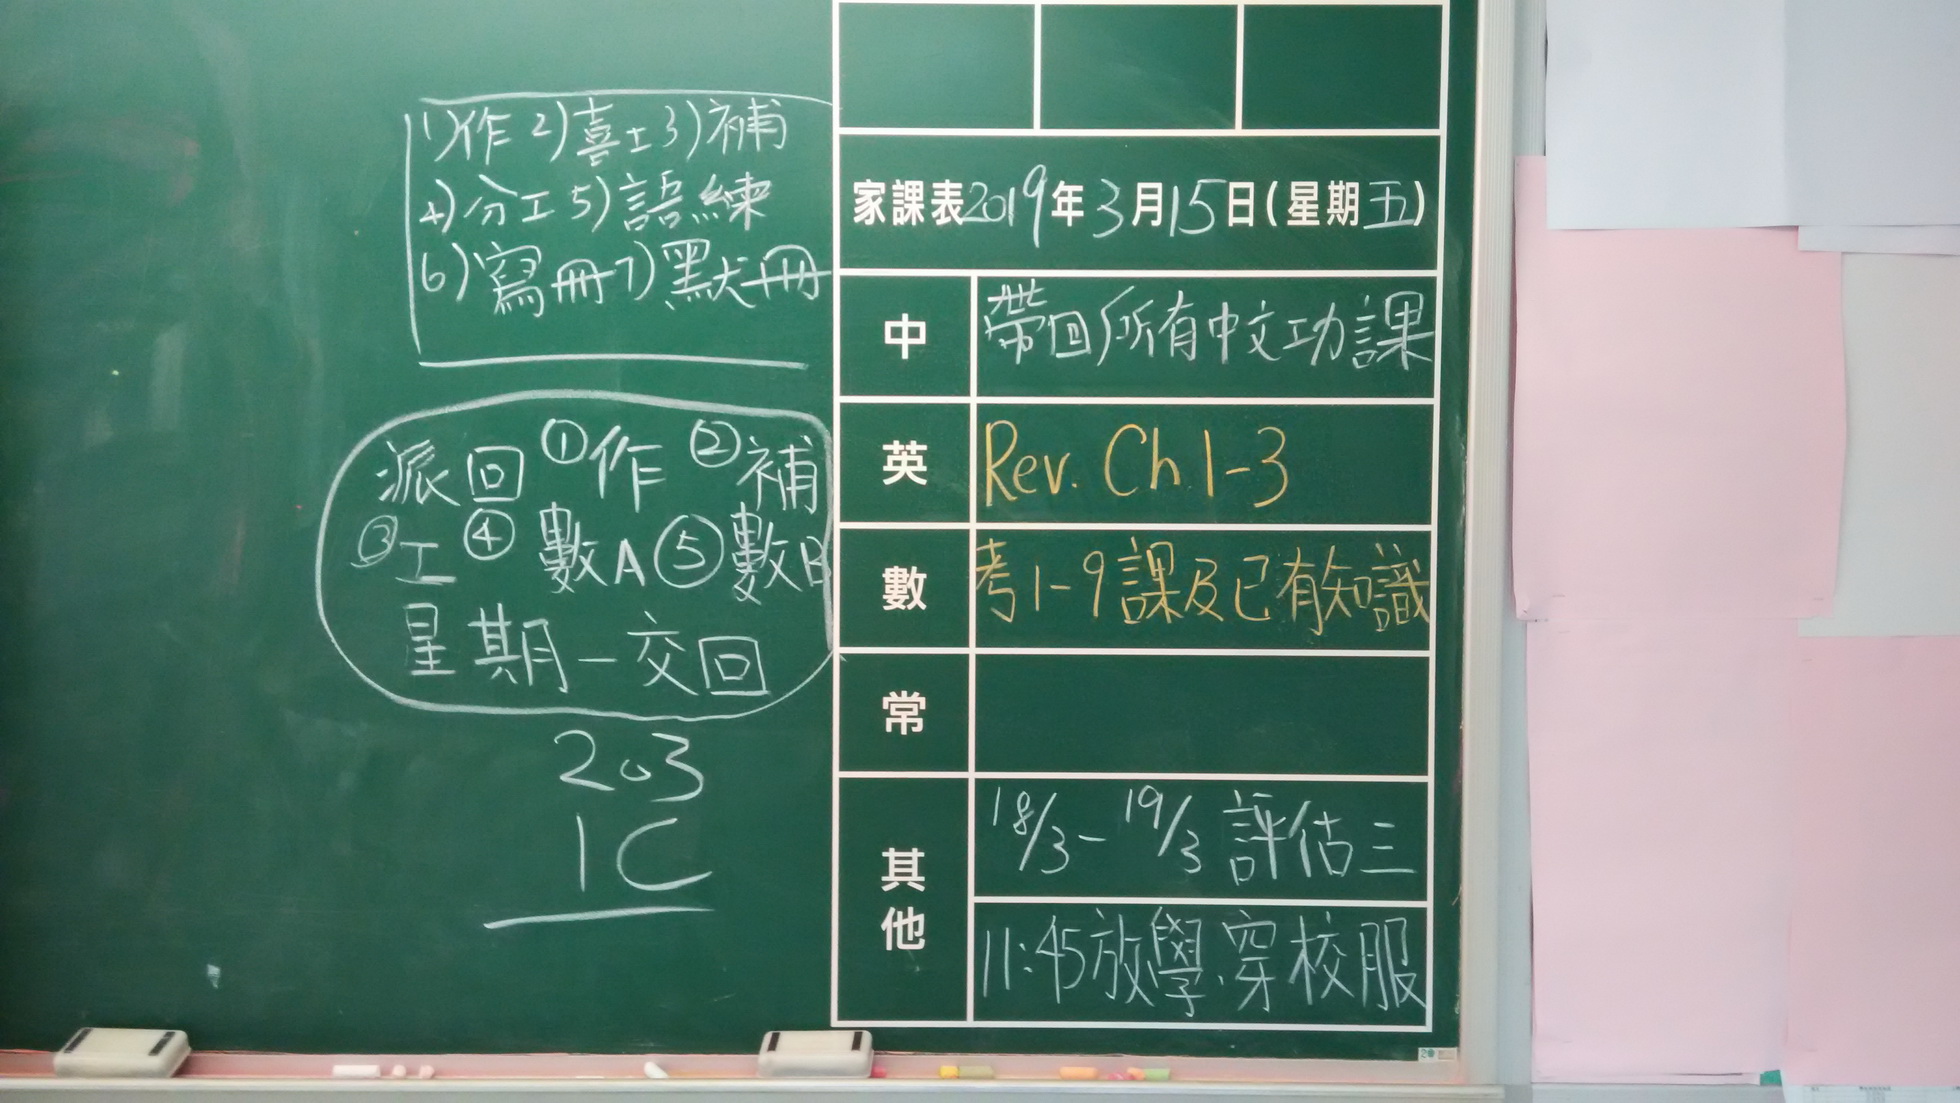 1)作 2)喜工 3)補
4)分工 5)語練
6)寫冊 7)默冊
派回 ①作 ②補
③工 ④ 數A ⑤ 數B
星期一交回
203
1C
家課表2019年3月15日(星期五)
中 帶回所有中文功課
英 Rev. Ch.1-3
數 考1-9課及已有知識
常
其他 18/3- 19/3 評估三
11:45放學.穿校服